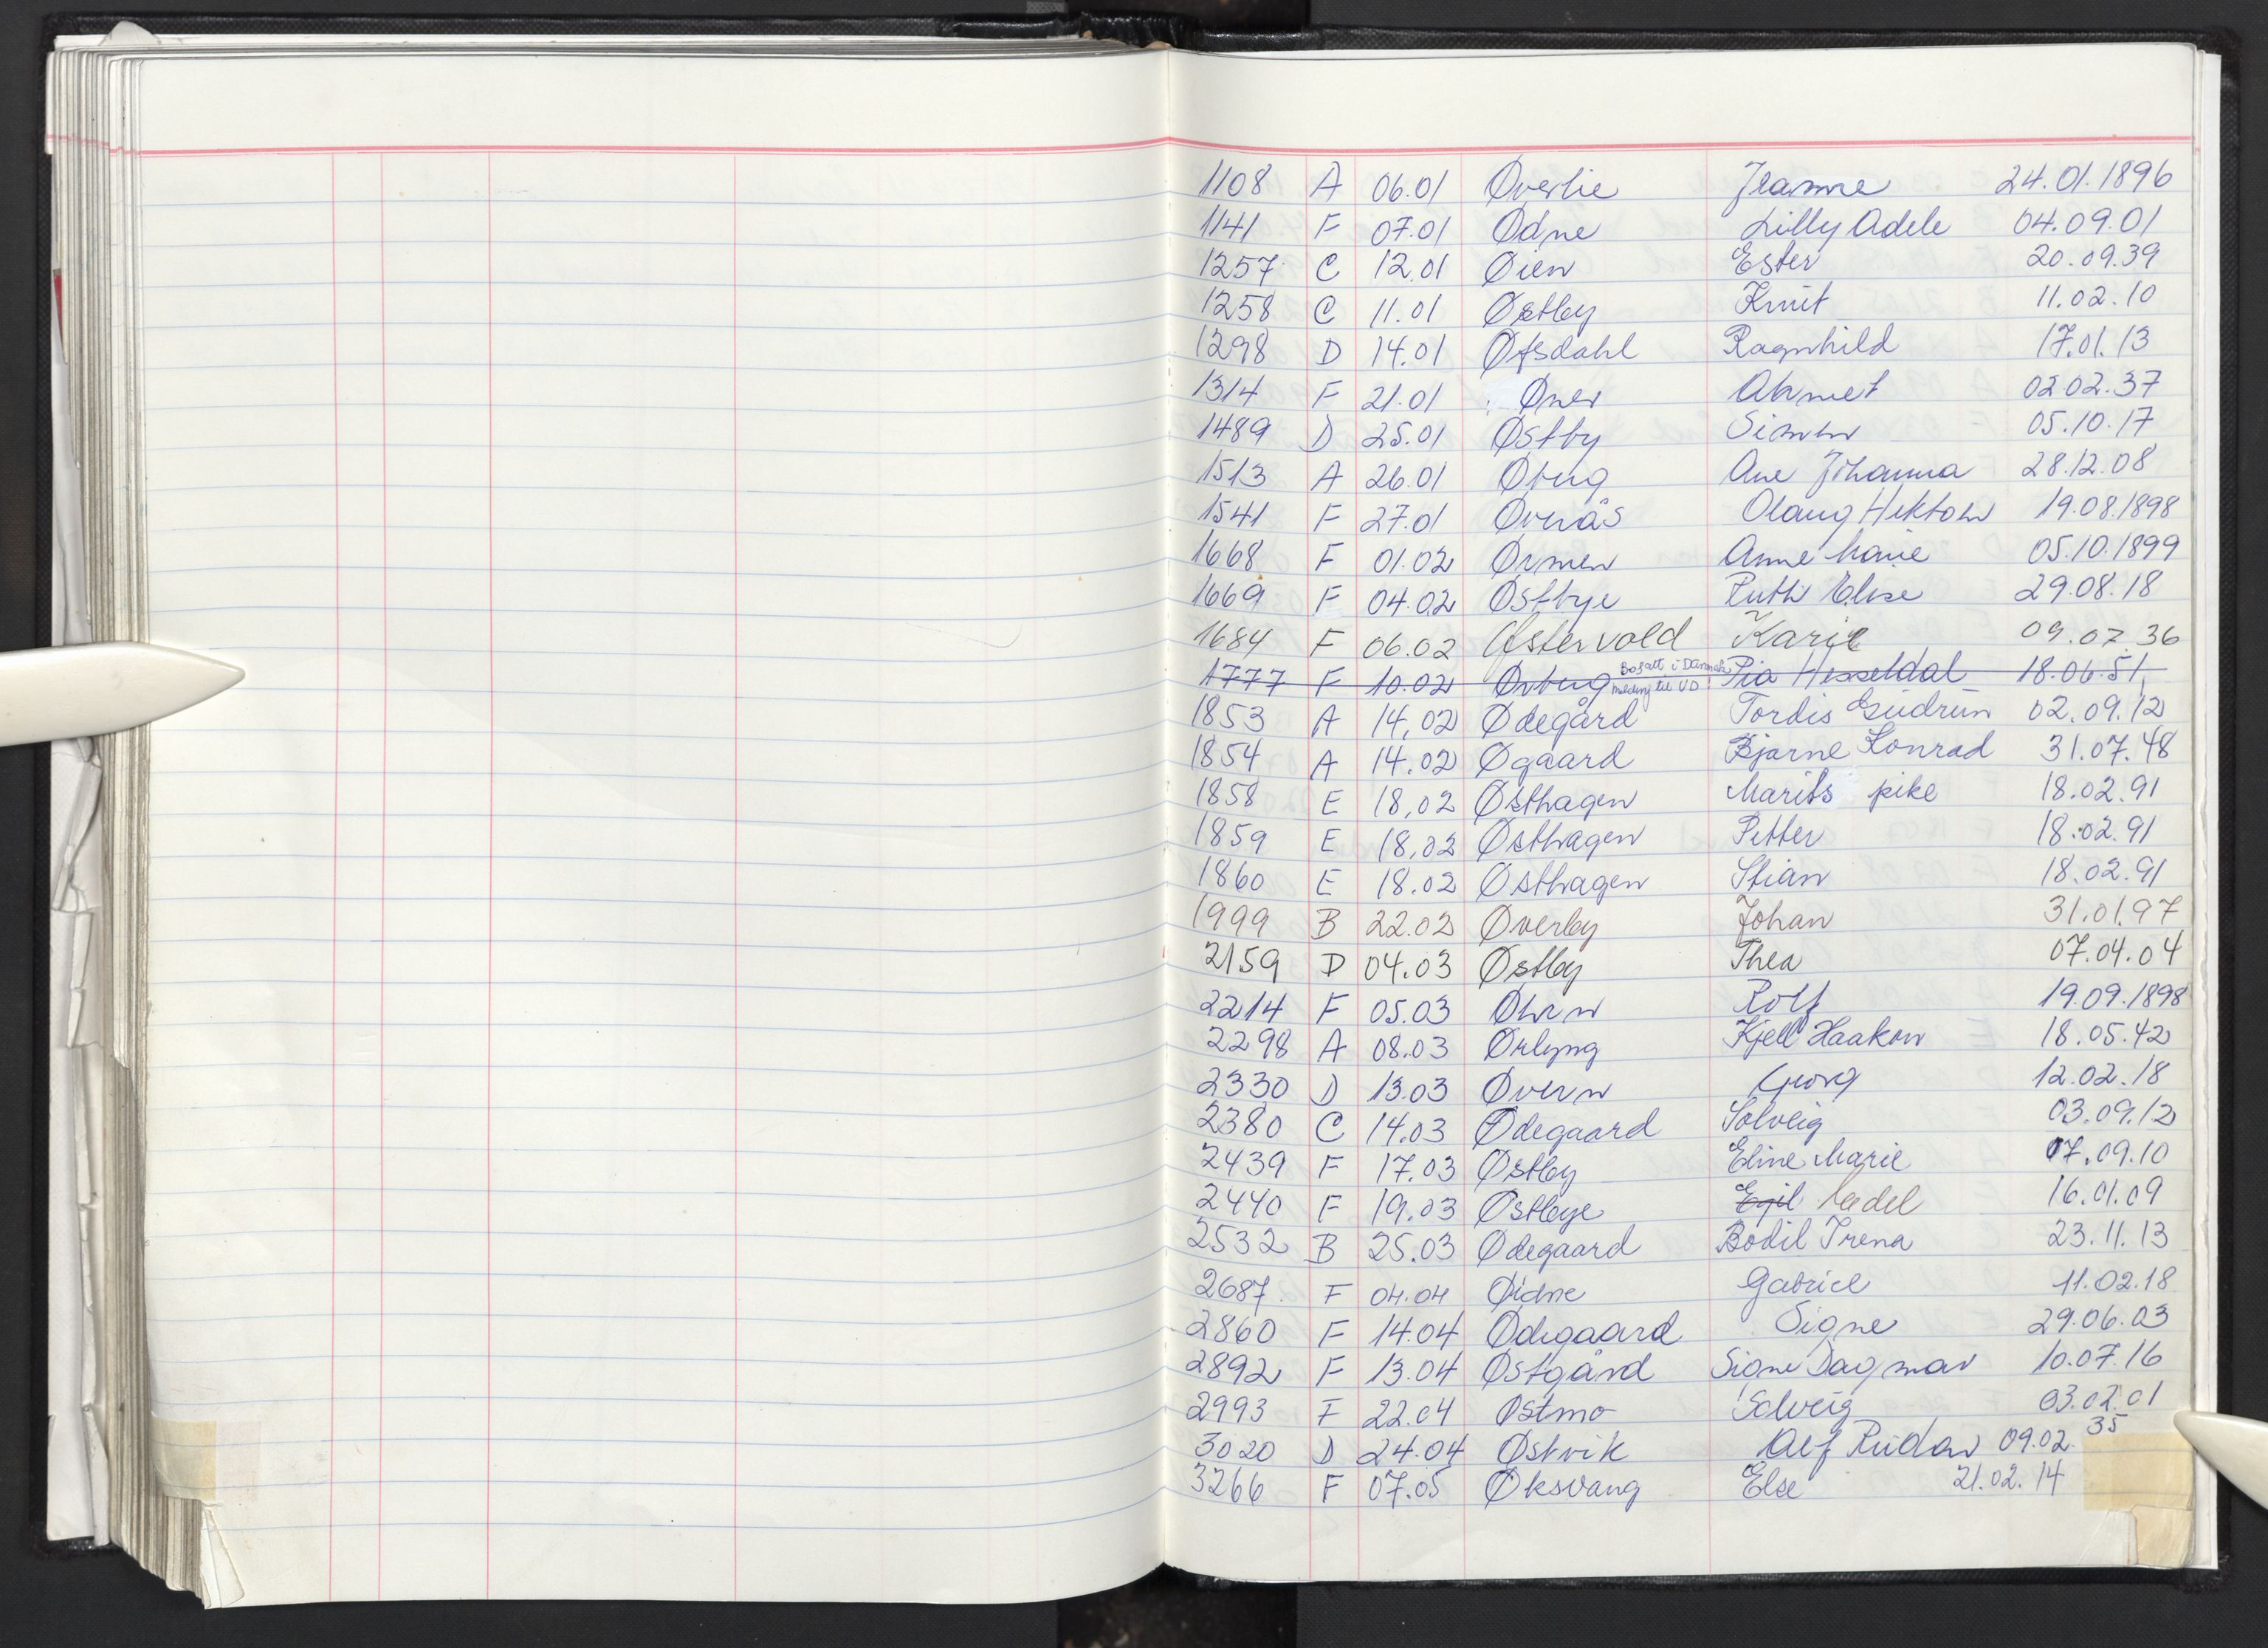 1108 A 06.01 Øverlie Jeanne 24.01.1896
1141 F 07.01 Ødne Lilly Adele 04.09.01
1257 C 12.01 Øien Ester 20.09.39
1258 C 11.01 Østby Knut 11.02.10
1298 D 14.01 Øfsdahl Ragnhild 17.01.13
1314 F 21.01 Øner Ahmet 02.02.37
1489 D 25.01 Østby Simen 05.10.17
1513 A 26.01 Øberg Ane Johanna 28.12.08
1541 F 27.01 Øverås Olaug Hektoen 19.08.1898
1668 F 01.02 Ørmen Anne Marie 05.10.1899
1669 F 04.02 Østbye Ruth Elise 29.08.18
1684 F 06.02 Østervold Karie 09.07.36
1777 F 10.02 Ørberg Bosatt i Danmark melding til UD Pia Hesseldal 18.06.51
1853 A 14.02 Ødegård Tordis Gudrun 02.09.12
1854 A 14.02 Øgaard Bjarne Konrad 31.07.48
1858 E 18.02 Østhagen Marits pike 18.02.91
1859 E 18.02 Østhagen Petter 18.02.91
1860 E 18.02 Østhagen Stian 18.02.91
1999 B 22.02 Øverby Johan 31.01.97
2159 D 04.03 Østby Thea 07.04.04
2214 F 05.03 Øhrn Rolf 19.09.1898
2298 A 08.03 Ørlyng Kjell Haakon 18.05.42
2330 D 13.03 Øvern Georg 12.02.18
2380 C 14.03 Ødegaard Solveig 03.09.12
2439 F 17.03 Østby Eline Marie 07.09.10
2440 F 19.03 Østbye Egil 16.01.09
2532 B 25.03 Ødegaard Bodil Irena 23.11.13
2687 F 04.04 Øidne Gabriel 11.02.18
2860 F 14.04 Ødegaard Signe 29.06.03
2892 F 13.04 Østgård Signe Dagmar 10.07.16
2993 F 22.04 Østmo Solveig 03.02.01
3020 D 24.04 Østvik Alf Reidar 09.02.35
3266 F 07.05 Øksvang Else 21.02.14